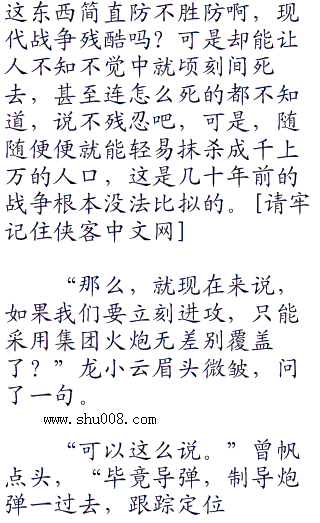 这东西简直防不胜防啊，现
代战争残酷吗？可是却能让
人不知不觉中就顷刻间死
去，甚至连怎么死的都不知
道，说不残忍吧，可是，随
随便便就能轻易抹杀成千上
万的人口，这是几十年前的
战争根本没法比拟的。[请牢
记住侠客中文网]
“那么，就现在来说，
如果我们要立刻进攻，只能
采用集团火炮无差别覆盖
了？”龙小云眉头微皱，问
了一句。
www.shu008.com
“可以这么说。”曾帆
点头，“毕竟导弹，制导炮
弹一过去，跟踪定位